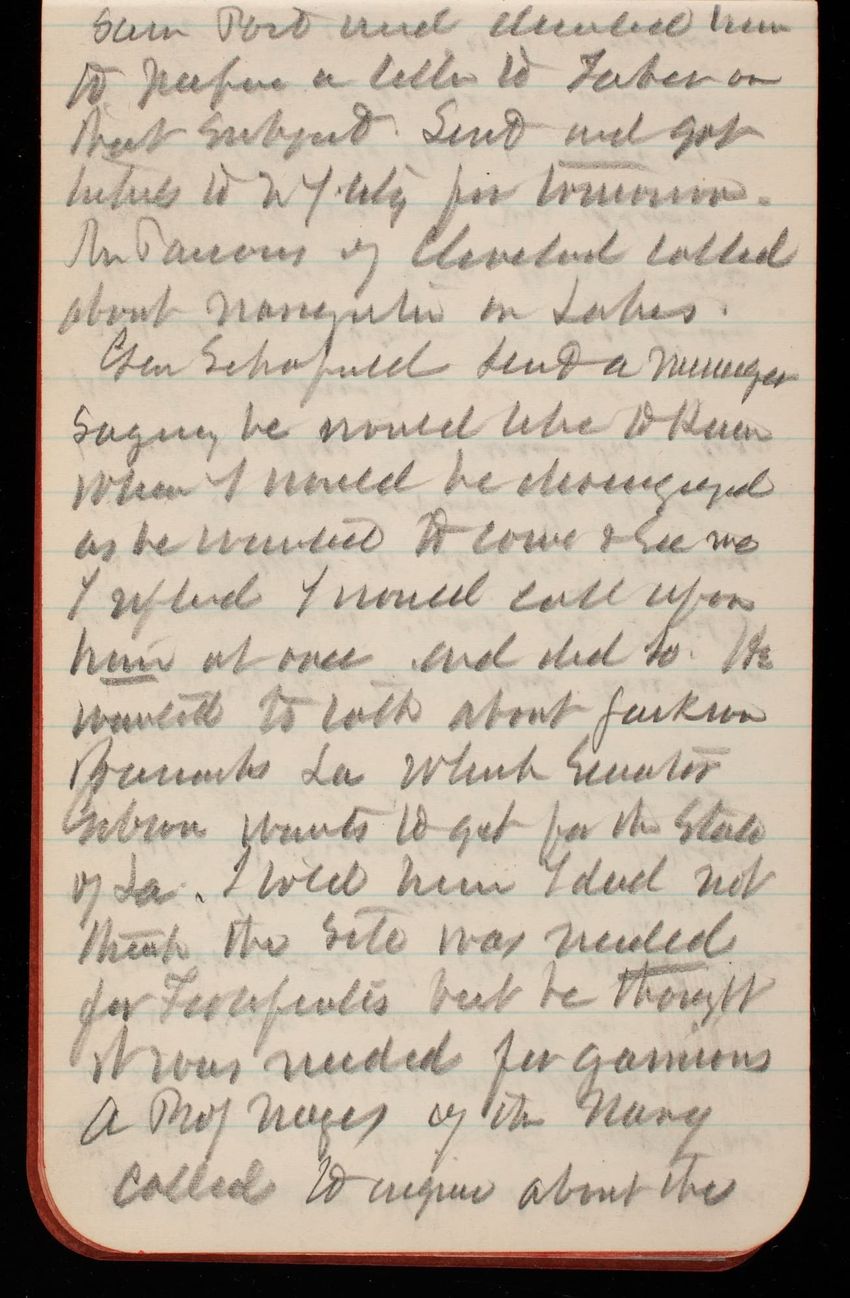 Sam Post and directed him
to prepare a letter to Faber on
that subject. Sent and got
tickets to N Y City for tomorrow.
Mr Parsons of Cleveland called
about navigation on Lakes.
Gen Schofield sent a messenger
saying he would like to know
when I would be disengaged
as he wanted to come & see me
I replied I would call upon
him at once and did so. He
wanted to talk about Jackson
Barracks La which Senator
Gibson wants to get for the State
of La. I told him I did not
think the site was needed
for Fortifications but he thought
it was needed for garrisons
A Prof of the Navy
called to inquire about the